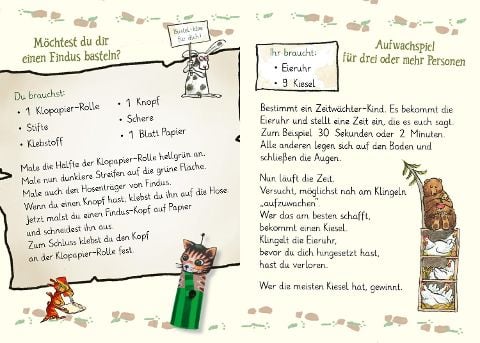 Möchtest du dir
einen Findus basteln?
Bastel-Idee
für dich!
Du brauchst:
• 1 Klopapier-Rolle
• Stifte
• Klebstoff
• 1 Knopf
• Schere
• 1 Blatt Papier
Male die Hälfte der Klopapier-Rolle hellgrün an.
Male nun dunklere Streifen auf die grüne Fläche.
Male auch den Hosenträger von Findus.
Wenn du einen Knopf hast, klebst du ihn auf die Hose.
Jetzt malst du einen Findus-Kopf auf Papier
und schneidest ihn aus.
Zum Schluss klebst du den Kopf
an der Klopapier-Rolle fest.
Aufwachspiel
für drei oder mehr Personen
Ihr braucht:
• Eieruhr
• 9 Kiesel
Bestimmt ein Zeitwächter-Kind. Es bekommt die
Eieruhr und stellt eine Zeit ein, die es euch sagt.
Zum Beispiel 30 Sekunden oder 2 Minuten.
Alle anderen legen sich auf den Boden und
schließen die Augen.
Nun läuft die Zeit.
Versucht, möglichst nah am Klingeln
„aufzuwachen“.
Wer das am besten schafft,
bekommt einen Kiesel.
Klingelt die Eieruhr,
bevor du dich hingesetzt hast,
hast du verloren.
Wer die meisten Kiesel hat, gewinnt.